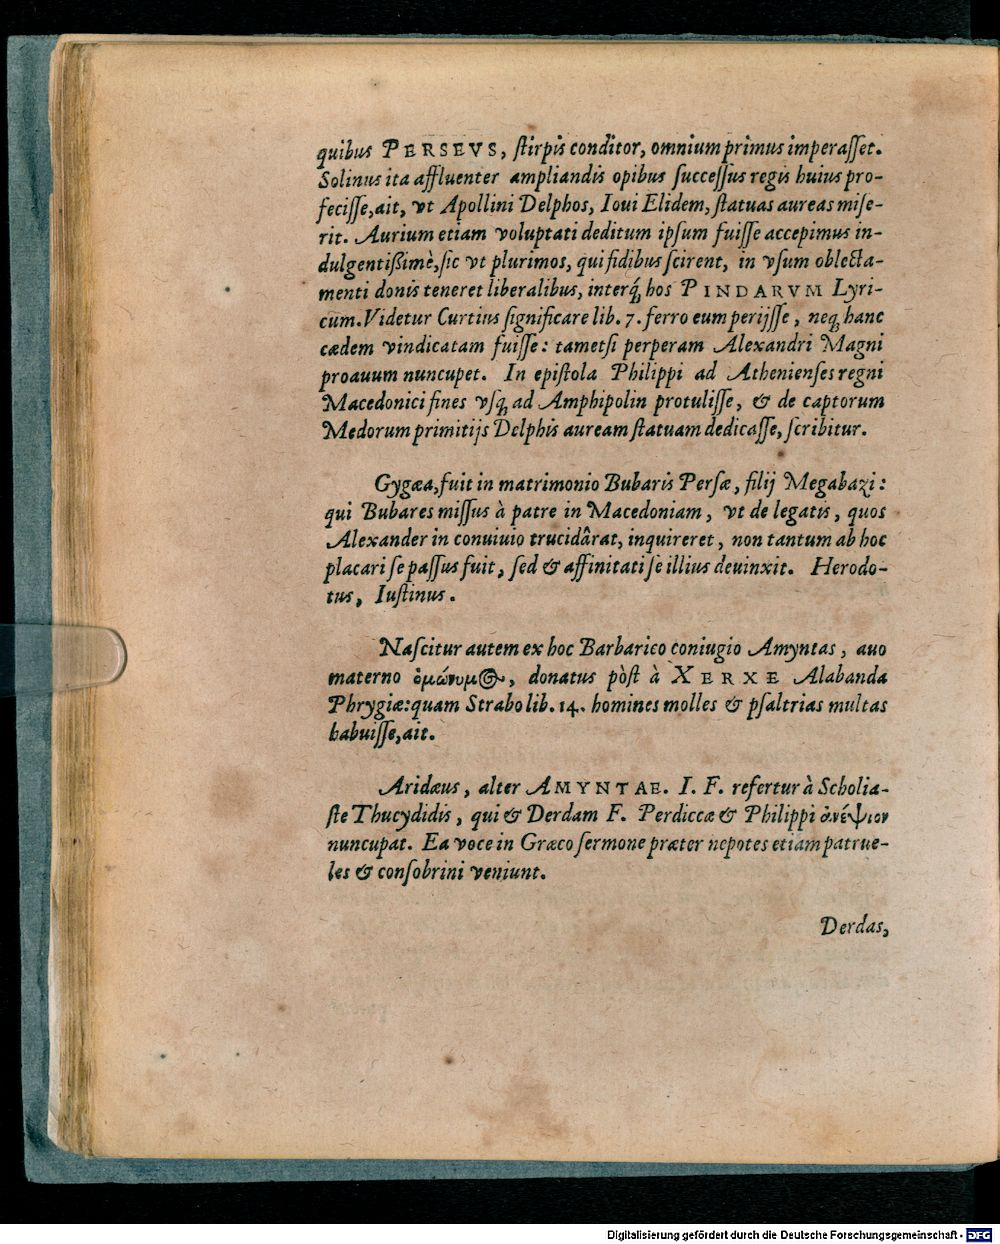 quibus PERSEVS, ſtirpis conditor, omnium primus imperaſſet.
Solinus ita affluenter ampliandis opibus ſucceſſus regis huius pro-
feciſſe, ait, vt Apollini Delphos, Ioui Elidem, ſtatuas aureas miſe-
rit. Aurium etiam voluptati deditum ipſum fuiſſe accepimus in-
dulgentißimè, ſic vt plurimos, qui fidibus ſcirent, in vſum oblecta-
menti donis teneret liberalibus, interq́; hos PINDARVM Lyri-
cum. Videtur Curtius ſignificare lib. 7. ferro eum perijſſe, neq; hanc
cædem vindicatam fuiſſe: tametſi perperam Alexandri Magni
proauum nuncupet. In epiſtola Philippi ad Athenienſes regni
Macedonici fines vſq; ad Amphipolin protuliſſe, & de captorum
Medorum primitijs Delphis auream ſtatuam dedicaſſe, ſcribitur.
Gygæa, fuit in matrimonio Bubaris Perſæ, filij Megabazi:
qui Bubares miſſus à patre in Macedoniam, vt de legatis, quos
Alexander in conuiuio trucidârat, inquireret, non tantum ab hoc
placari ſe paſſus fuit, ſed & affinitati ſe illius deuinxit. Herodo-
tus, Iuſtinus.
Naſcitur autem ex hoc Barbarico coniugio Amyntas, auo
materno ὁμώνυμος, donatus pòſt à XERXE Alabanda
Phrygiæ: quam Strabo lib. 14. homines molles & pſaltrias multas
habuiſſe, ait.
Aridæus, alter AMYNTAE. I. F. refertur à Scholia-
ſte Thucydidis, qui & Derdam F. Perdiccæ & Philippi ἀνέψιον
nuncupat. Ea voce in Græco ſermone præter nepotes etiam patrue-
les & conſobrini veniunt.
Derdas,
Digitalisierung gefördert durch die Deutsche Forschungsgemeinschaft - DFG